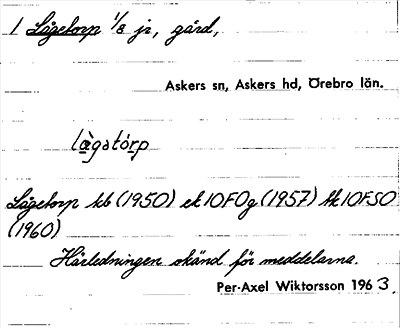 1 Lågetorp 1/8 jr, gård,
Askers sn, Askers hd, Örebro län.
lågstórp
Lågetorp kb (1950) ek 10F0g (1957) tk 10FSO
(1960)
Härledningen okänd för meddelarna.
Per-Axel Wiktorsson 1963.